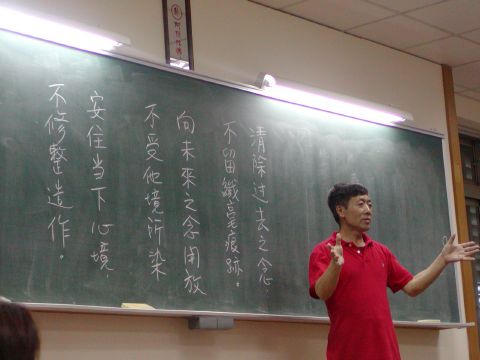 清除过去之念
不留纖毫痕跡。
向未來之念開放
不受他境所染
安住当下心境，
不修整造作。